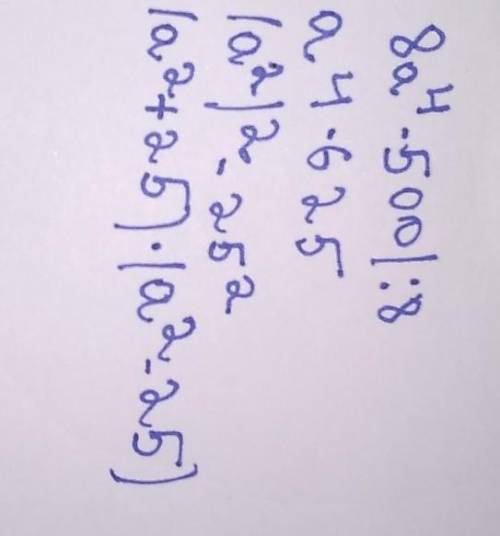 8a⁴-500|:8
a⁴-625
(a²)²-25²
(a²+25)·(a²-25)